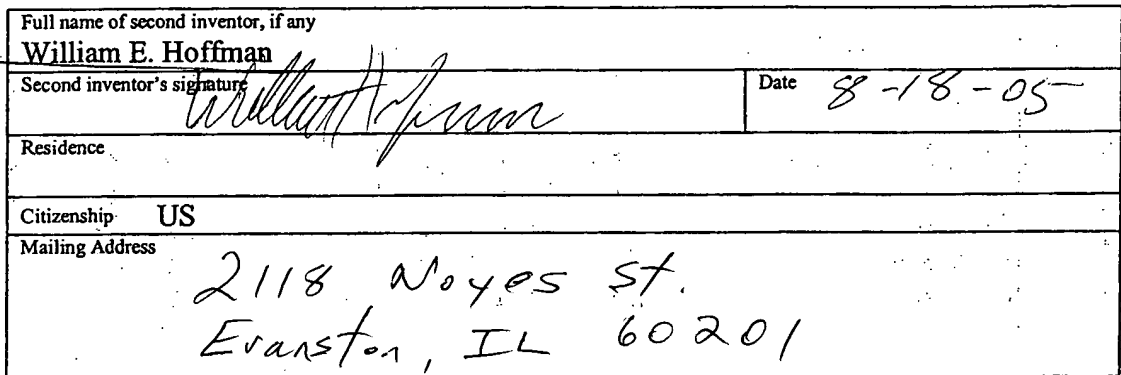 Full name of second inventor, if any
William E. Hoffman
Second inventor's signature William Hoffman Date 8-18-05
Residence
Citizenship US
Mailing Address
2118 Noyes St.
Evanston, IL 60201